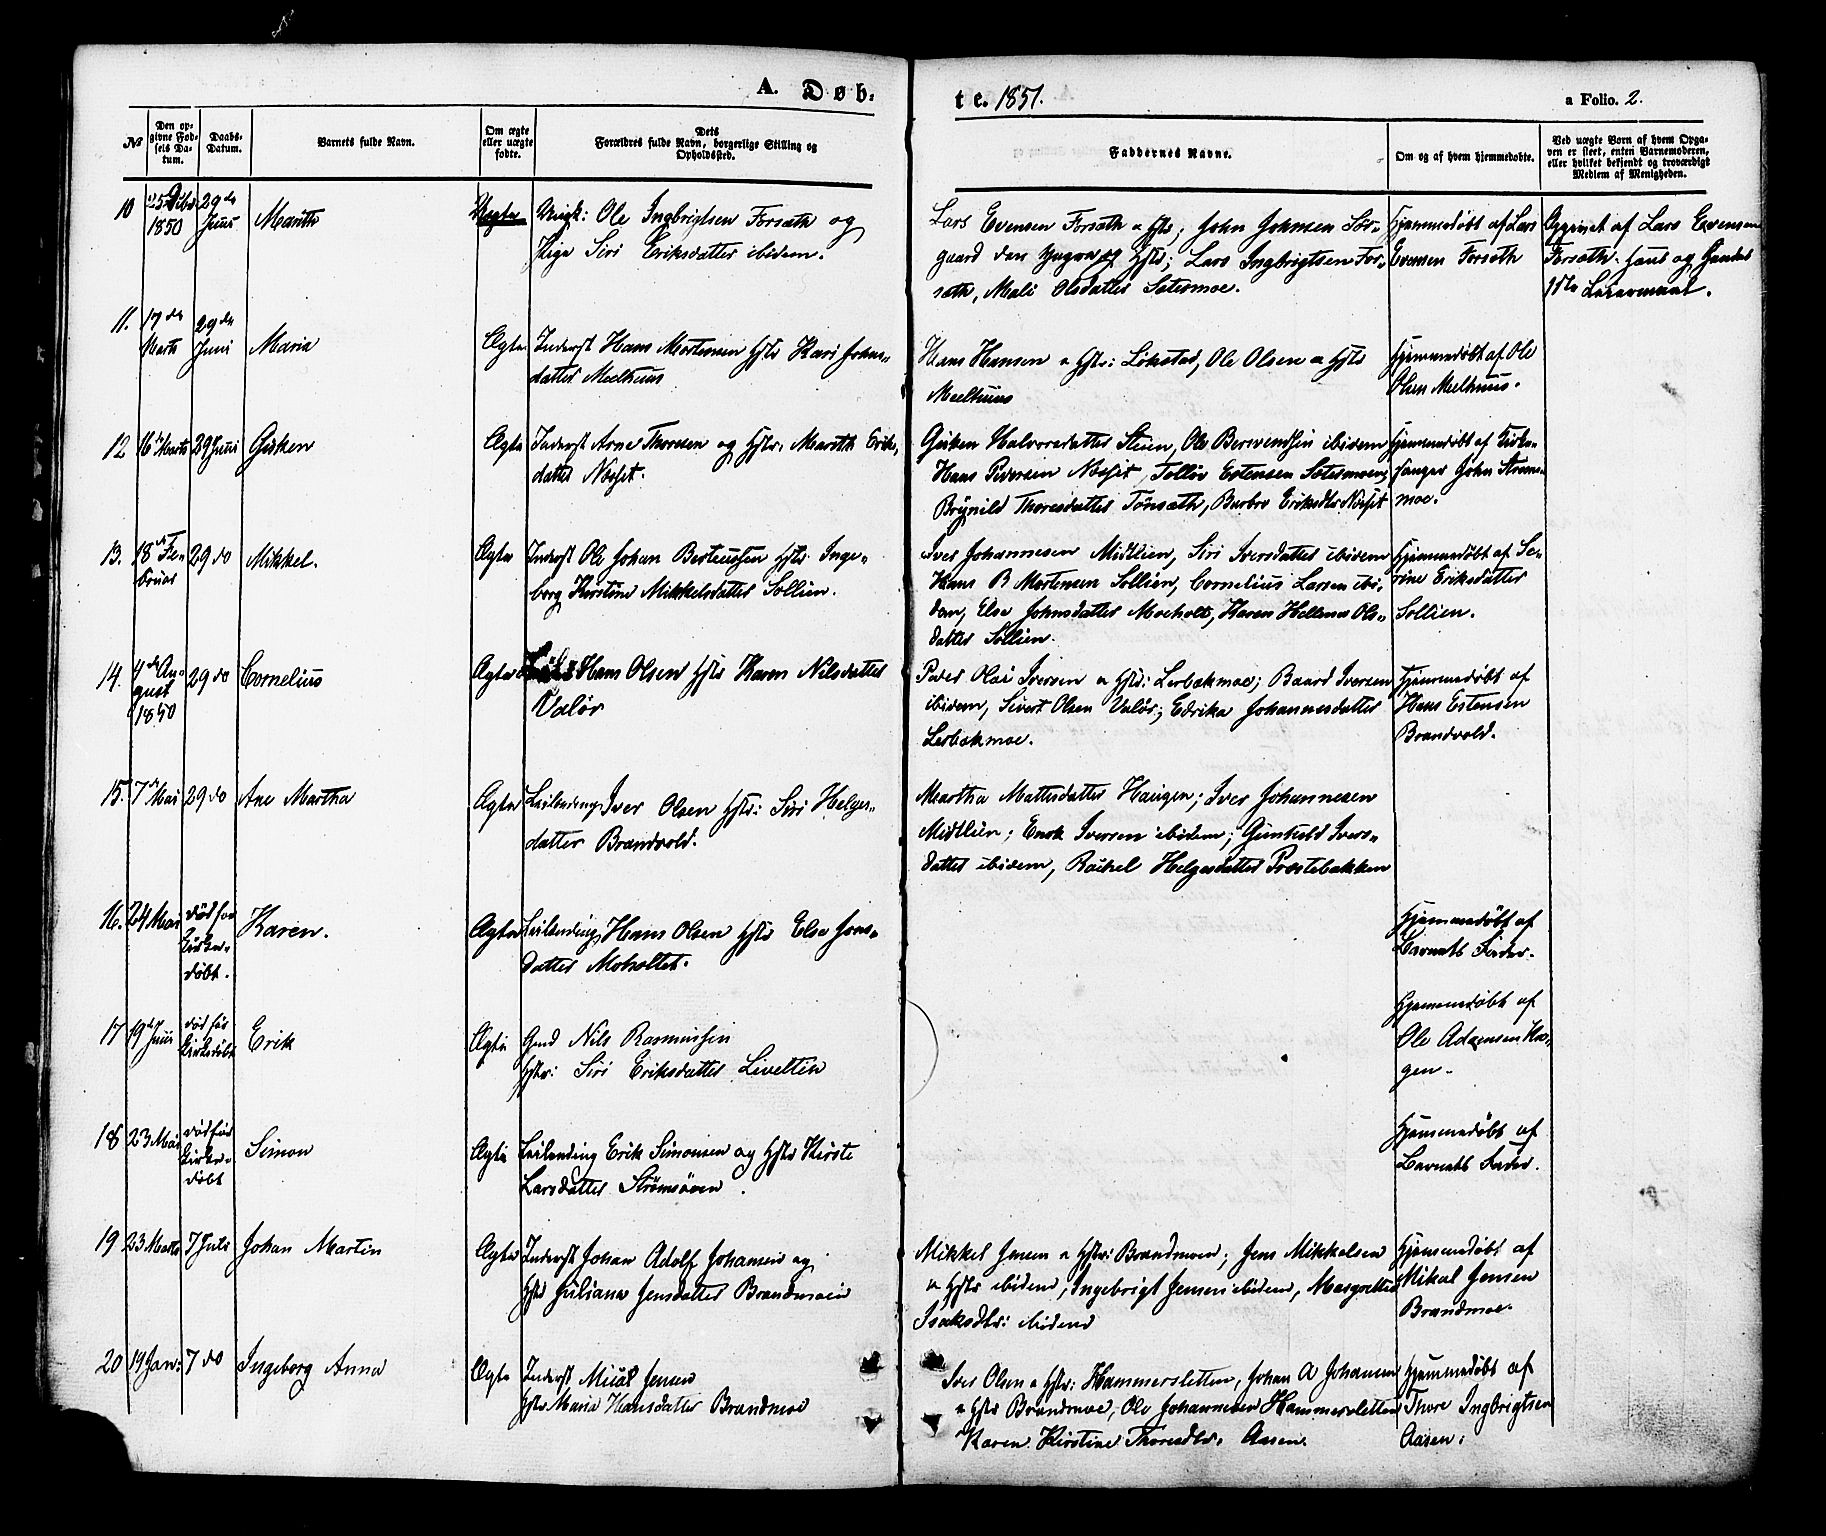 A. Døb-
te. 1851.
a Folio. 2.
No
Den op-
givne Fød-
sels Da-
tum.
Daabs-
Datum.
Barnets fulde Navn.
Om ægte
eller uægte
fødte.
Dets
Forældres fulde Navn, borgerlige Stilling og
Opholdssted.
Faddernes Navne.
Om og af hvem hjemmedøbt.
Ved uægte Børn af hvem Opga-
ven er skeet, enten Barnemoderen,
eller hvilket bekjendt og troværdigt
Medlem af Menigheden.
10
1850
29de
Juni
Marith
Uægte
Ungk: Ole Ingbrigtsen Forsæth og
Pige Siri Eriksdatter ibidem.
Lars Evensen Forsæth & Hstr; John Johnsen Sør-
gaard den yngre og Hstr; Lars Ingbrigtsen For-
sæth, Mali Olsdatter Sætermoe.
Hjemmedøbt af Lars
Evensen Forsæth
Opgivet af Lars Evensen
Forsæth. hans og Hendes
1ste Leiermaal.
11.
17de
Marts
29de
Juni
Maria
Ægte
Inderst Hans Mortensen Hstr Kari Johns-
datter Meelhuus
Hans Hansen & Hstr: Løkstad, Ole Olsen & Hstr
Meelhuus
Hjemmedøbt af Ole
Olsen Meelhuus.
12
16de Marts
29 Juni
Gisken
Ægte
Inderst Arne Thoresen og Hstr. Marith Eriks-
datter Næsset.
Gisken Halvorsdatter Steien, Ole Berevendsen ibidem
Hans Pedersen Næsset, Tollov Estensen Sætermoen,
Brynild Thoresdatter Tønsæth, Barbro Eriksdtr Næsset
Hjemmedøbt af Kirke-
sanger John Strøm-
moe.
13.
18de Fe-
bruar
29 do
Mikkel.
Ægte
Inderst Ole Johan Berteussen Hstr Inge-
borg Kirstine Mikkelsdatter Sollien.
Iver Johannesen Midtlien, Siri Iversdatter ibidem
Hans B Mortensen Sollien, Cornelius Larsen ibi-
dem, Else Johnsdatter Moeholt, Karen Hellena Ols-
datter Sollien.
Hjemmedøbt af Se-
rine Eriksdatter
Sollien.
14.
4de Au-
gust
1850
29 do
Cornelius
Ægte
Hans Olsen Hstr Karen Nilsdatter
Valør
Peder Olai Iversen & Hstr: Lerbækmoe; Baard Iversen
ibidem, Sivert Olsen Valør; Edrika Johannesdatter
Lerbækmoe.
Hjemmedøbt af
Hans Estensen
Brandvold.
15.
7de Mai
29 do
Ane Martha
Ægte
Leilending Iver Olsen Hstr: Siri Helges-
datter Brandvold.
Martha Mattesdatter Haugen; Iver Johannesen
Midtlien; Enok Iversen ibidem; Gunhild Ivers-
datter ibidem, Rachel Helgesdatter Præstebakken
16.
24 Mai
død før
Kirke-
døbt.
Karen.
Ægte
Leilending Hans Olsen Hstr Else Jons-
datter Moholtet.
Hjemmedøbt af
Barnets Fader.
17
19de Juni
død før
Kirkedøbt
Erik
Ægte
Gmd Nils Rasmussen
Hstr: Siri Eriksdatter Liveltin
Hjemmedøbt af
Ole Adzensen Hau-
gen.
18
23 Mai
død før
Kirke-
døbt
Simon
Ægte
Leilending Erik Simonsen og Hstr Kirste
Larsdatter Strømsøren.
Hjemmedøbt af
Barnets Fader.
19
23 Marts
7 Juli
Johan Martin
Ægte
Inderst Johan Adolf Johansen og
Hstr Juliana Jensdatter Brandmoen
Mikkel Jensen & Hstr: Brandmoen; Jens Mikkelsen
& Hstr ibidem, Ingebrigt Jensen ibidem, Margrethe
Isaksdtr: ibidem
Hjemmedøbt af
Mikal Jensen
Brandmoe.
20
19 Jan:
7 do
Ingeborg Anna
Ægte
Inderst Micael Jensen
Hstr Maria Hansdatter Brandmoe
Iver Olsen & Hstr: Hammersletten, Johan A Johansen
& Hstr Brandmoe, Ole Johannesen Hammersletten
Karen Kirstine Thoresdtr. Aasen.
Hjemmedøbt af
Thore Ingbrigtsen
Aasen.